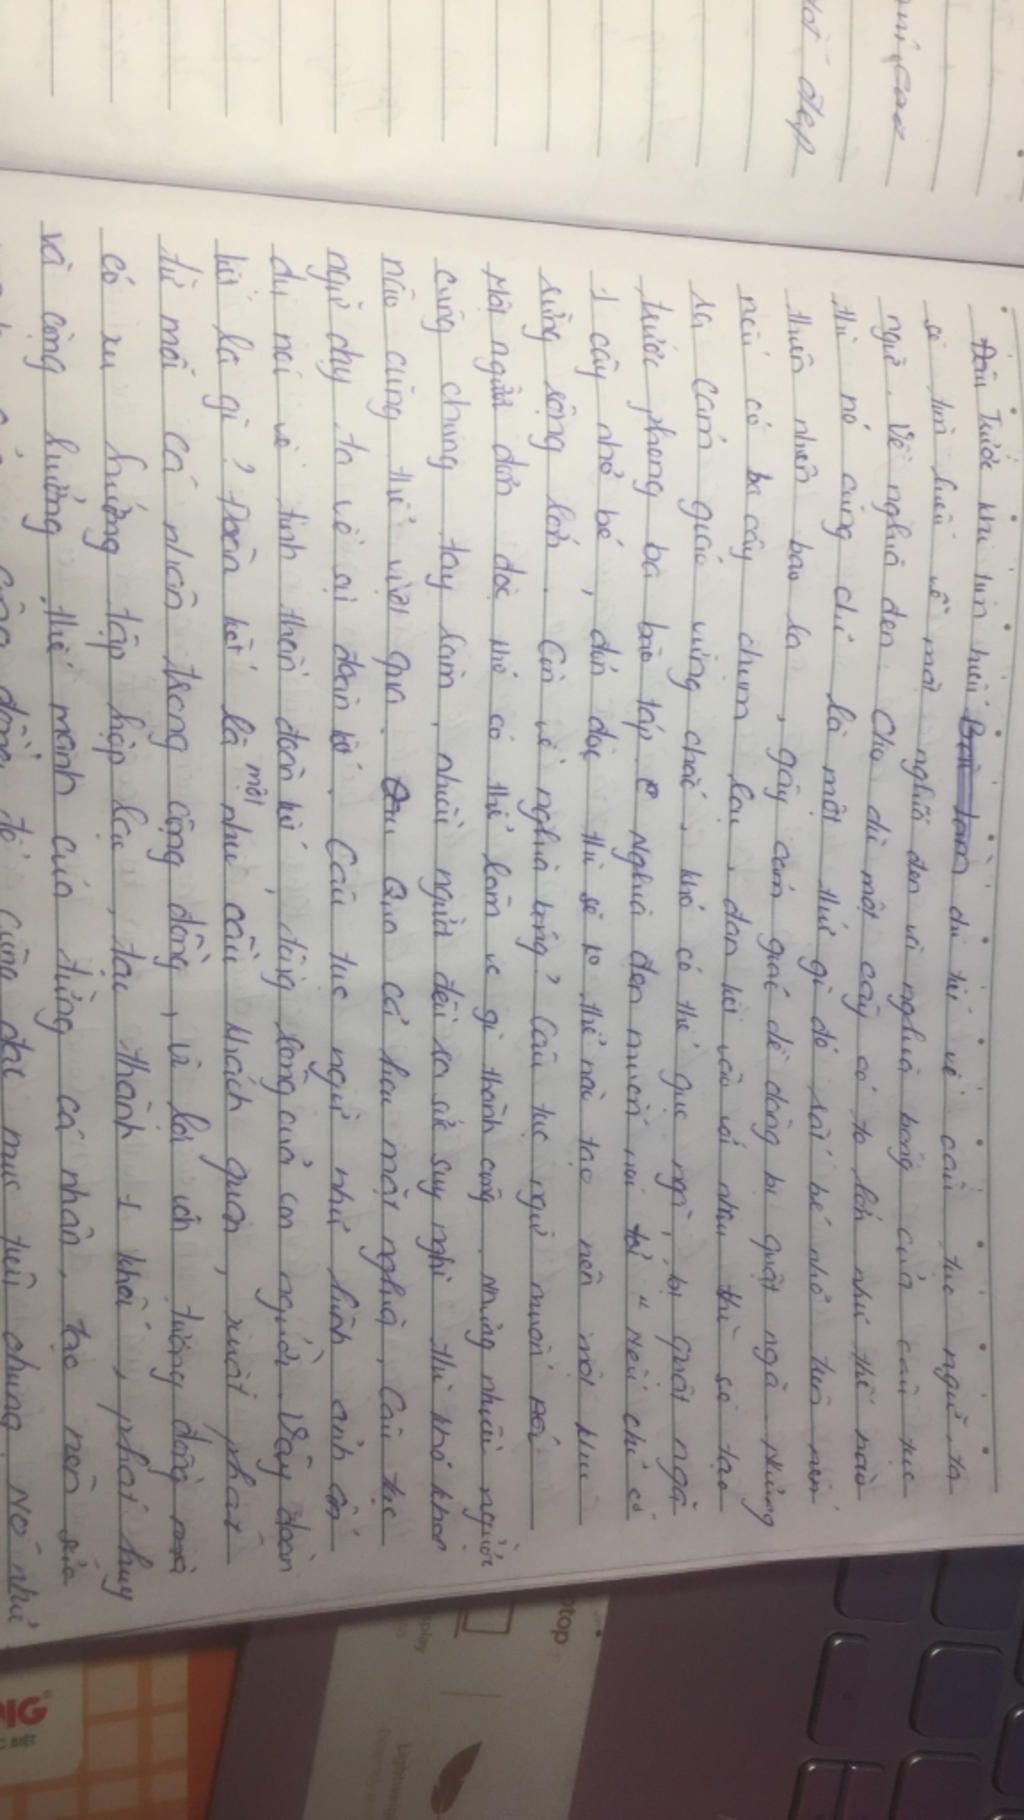 Đầu Trước khi tìm hiểu chi tiết về câu tục ngữ, ta
sẽ tìm hiểu về một nghĩa đen và nghĩa bóng của câu tục
ngữ. Về nghĩa đen. Cho dù một cây có to lớn như thế nào
thì nó cũng chỉ là một thứ gì đó rất bé nhỏ trên nền
thiên nhiên bao la, gây cảm giác dễ dàng bị quật ngã. Nhưng
nếu có ba cây chụm lại, đan kết vào với nhau thì sẽ tạo
ra cảm giác vững chắc, khó có thể gục ngã, bị quật ngã
trước phong ba bão táp. Nghĩa đen muốn nói "Nếu chỉ có
1 cây nhỏ bé, đơn độc thì sẽ ko thể nào tạo nên một khu
rừng rộng lớn. Còn về nghĩa bóng? Câu tục ngữ muốn nói
Một người đơn độc khó có thể làm việc gì thành công. Nhưng nhiều người
cùng chung tay làm, nhiều người đều ra sức suy nghĩ thì khó khăn
nào cũng thể vượt qua. Qua cả hai mặt nghĩa, Câu tục
ngữ dạy ta về sự đoàn kết. Câu tục ngữ như hình ảnh ẩn
dụ nói về tinh thần đoàn kết, đồng lòng của con người. Vậy đoàn
kết là gì? Đoàn kết là một nhu cầu khách quan, xuất phát
từ mỗi cá nhân trong cộng đồng, vì lợi ích tương đồng mà
có xu hướng tập hợp lại, tạo thành 1 khối, phát huy
và cộng hưởng thế mạnh của từng cá nhân, tạo nên sức
cộng đồng để cùng đạt mục tiêu chung. Nó như
đẹp
ptop
splay
Lightweight
NG